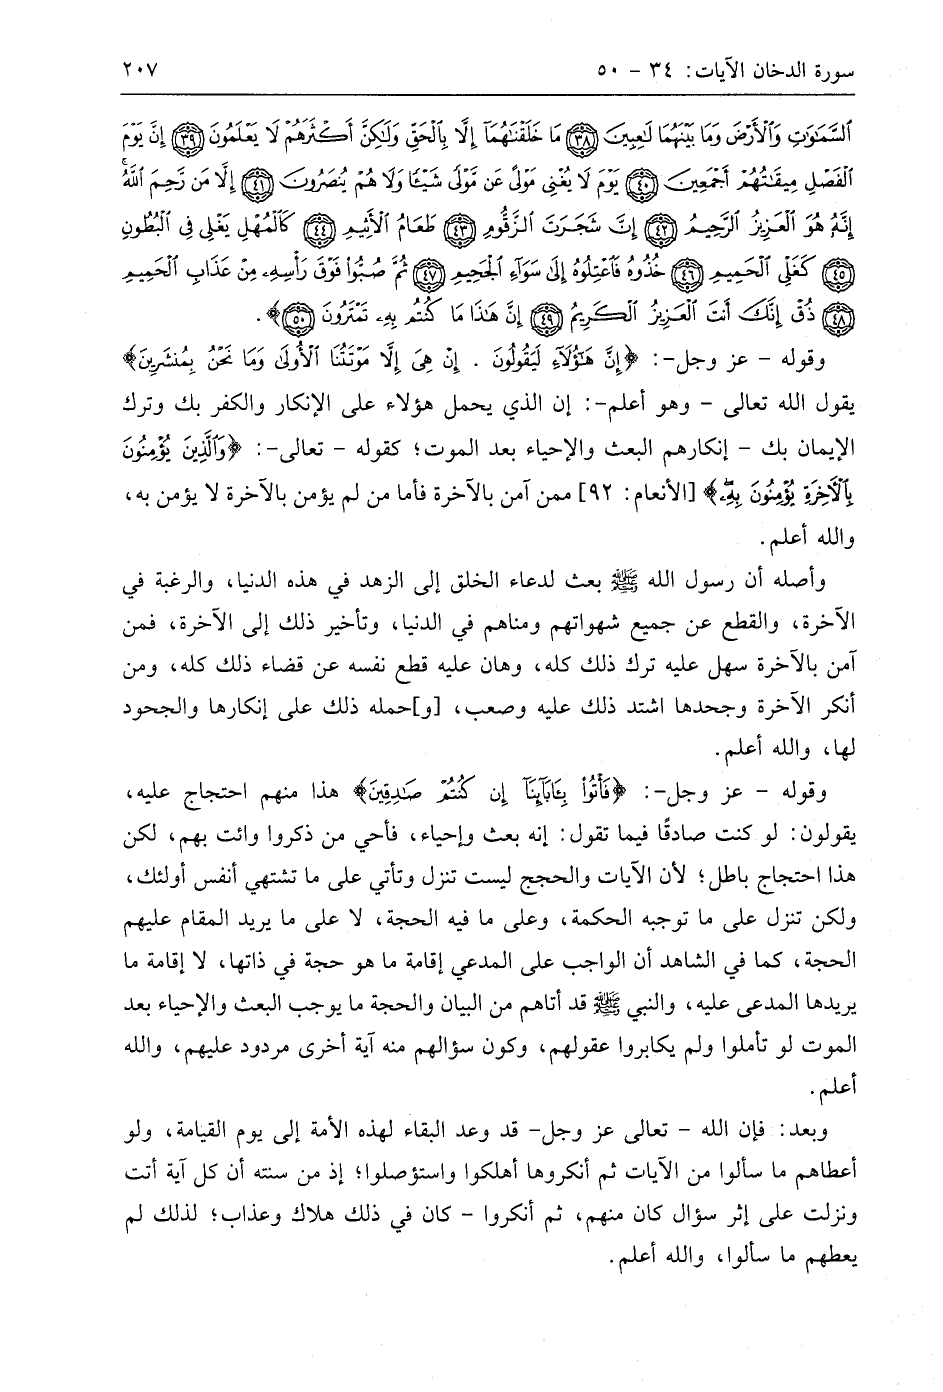 سورة الدخان الآيات: ٣٤ - ٥٠ ٢٠٧
السَّمَٰوَٰتِ وَٱلْأَرْضَ وَمَا بَيْنَهُمَا لَٰعِبِينَ ﴿٣٨﴾ مَا خَلَقْنَٰهُمَآ إِلَّا بِٱلْحَقِّ وَلَٰكِنَّ أَكْثَرَهُمْ لَا يَعْلَمُونَ ﴿٣٩﴾ إِنَّ يَوْمَ
ٱلْفَصْلِ مِيقَٰتُهُمْ أَجْمَعِينَ ﴿٤٠﴾ يَوْمَ لَا يُغْنِى مَوْلًى عَن مَّوْلًى شَيْـًٔا وَلَا هُمْ يُنصَرُونَ ﴿٤١﴾ إِلَّا مَن رَّحِمَ ٱللَّهُ ۚ
إِنَّهُ هُوَ ٱلْعَزِيزُ ٱلرَّحِيمُ ﴿٤٢﴾ إِنَّ شَجَرَتَ ٱلزَّقُّومِ ﴿٤٣﴾ طَعَامُ ٱلْأَثِيمِ ﴿٤٤﴾ كَٱلْمُهْلِ يَغْلِى فِى ٱلْبُطُونِ
﴿٤٥﴾ كَغَلْىِ ٱلْحَمِيمِ ﴿٤٦﴾ خُذُوهُ فَٱعْتِلُوهُ إِلَىٰ سَوَآءِ ٱلْجَحِيمِ ﴿٤٧﴾ ثُمَّ صُبُّوا۟ فَوْقَ رَأْسِهِۦ مِنْ عَذَابِ ٱلْحَمِيمِ
﴿٤٨﴾ ذُقْ إِنَّكَ أَنتَ ٱلْعَزِيزُ ٱلْكَرِيمُ ﴿٤٩﴾ إِنَّ هَٰذَا مَا كُنتُم بِهِۦ تَمْتَرُونَ ﴿٥٠﴾﴾.
وقوله - عز وجل-: ﴿إِنَّ هَٰٓؤُلَآءِ لَيَقُولُونَ . إِنْ هِىَ إِلَّا مَوْتَتُنَا ٱلْأُولَىٰ وَمَا نَحْنُ بِمُنشَرِينَ﴾
يقول الله تعالى - وهو أعلم-: إن الذي يحمل هؤلاء على الإنكار والكفر بك وترك
الإيمان بك - إنكارهم البعث والإحياء بعد الموت؛ كقوله - تعالى-: ﴿وَٱلَّذِينَ يُؤْمِنُونَ
بِٱلْآخِرَةِ يُؤْمِنُونَ بِهِۦ﴾ [الأنعام: ٩٢] ممن آمن بالآخرة فأما من لم يؤمن بالآخرة لا يؤمن به،
والله أعلم.
وأصله أن رسول الله ﷺ بعث لدعاء الخلق إلى الزهد في هذه الدنيا، والرغبة في
الآخرة، والقطع عن جميع شهواتهم ومناهم في الدنيا، وتأخير ذلك إلى الآخرة، فمن
آمن بالآخرة سهل عليه ترك ذلك كله، وهان عليه قطع نفسه عن قضاء ذلك كله، ومن
أنكر الآخرة وجحدها اشتد ذلك عليه وصعب، [و]حمله ذلك على إنكارها والجحود
لها، والله أعلم.
وقوله - عز وجل-: ﴿فَأْتُوا۟ بِـَٔابَآئِنَآ إِن كُنتُمْ صَٰدِقِينَ﴾ هذا منهم احتجاج عليه،
يقولون: لو كنت صادقًا فيما تقول: إنه بعث وإحياء، فأحي من ذكروا وائت بهم، لكن
هذا احتجاج باطل؛ لأن الآيات والحجج ليست تنزل وتأتي على ما تشتهي أنفس أولئك،
ولكن تنزل على ما توجبه الحكمة، وعلى ما فيه الحجة، لا على ما يريد المقام عليهم
الحجة، كما في الشاهد أن الواجب على المدعي إقامة ما هو حجة في ذاتها، لا إقامة ما
يريدها المدعى عليه، والنبي ﷺ قد أتاهم من البيان والحجة ما يوجب البعث والإحياء بعد
الموت لو تأملوا ولم يكابروا عقولهم، وكون سؤالهم منه آية أخرى مردود عليهم، والله
أعلم.
وبعد: فإن الله - تعالى عز وجل- قد وعد البقاء لهذه الأمة إلى يوم القيامة، ولو
أعطاهم ما سألوا من الآيات ثم أنكروها أهلكوا واستؤصلوا؛ إذ من سنته أن كل آية أتت
ونزلت على إثر سؤال كان منهم، ثم أنكروا - كان في ذلك هلاك وعذاب؛ لذلك لم
يعطهم ما سألوا، والله أعلم.